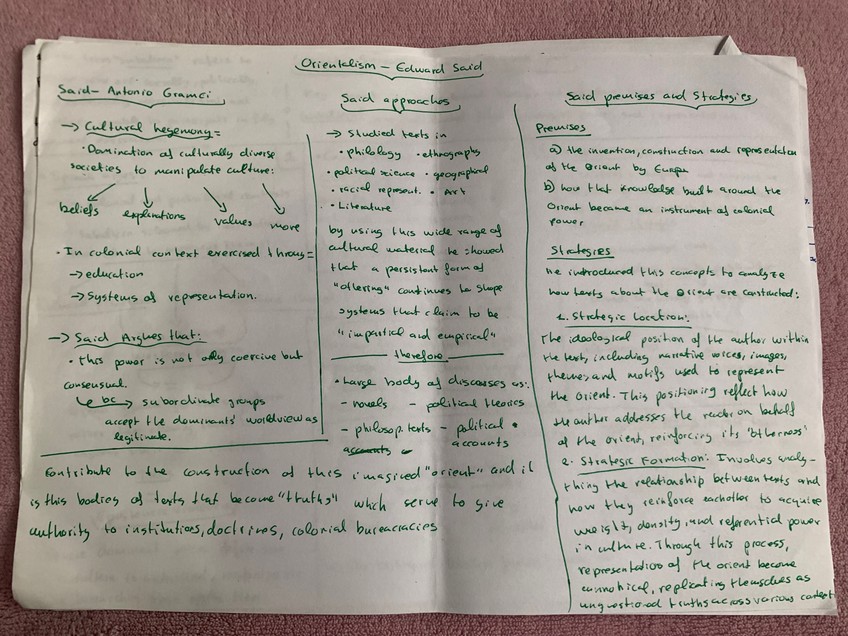 Orientalism – Edward Said
Said – Antonio Gramci
→ Cultural hegemony=
· Domination of culturally diverse
societies to manipulate culture:
beliefs explanations values more
· In colonial context exercised throug=
→ education
→ Systems of representation.
→ Said Argues that:
· this power is not only coercive but
consensual.
bc → subordinate groups
accept the dominants' worldview as
legitimate.
Said approaches
→ Studied texts in
· philology · ethnography
· political science · geographical
· racial represent. · Art
· Literature
by using this wide range of
cultural material he showed
that a persistent form of
"othering" continues to shape
systems that claim to be
"impartial and empirical"
therefore
· Large body of discosses as:
– novels – political theories
– philosop. texts – political
accounts accounts
Contribute to the construction of this imagined "orient" and it
is this bodies of texts that become "truths" which serve to give
authority to institutions, doctrines, colonial bureacracies
Said premises and Strategies
Premises
a) the invention, construction and representation
of the Orient by Europe
b) how that knowledge built around the
Orient became an instrument of colonial
power.
Strategies
he introduced this concepts to analyze
how texts about the Orient are constructed:
1. Strategic Location:
The ideological position of the author within
the text, including narrative voices, images,
themes, and motifs used to represent
the Orient. This positioning reflect how
the author addresses the reader on behalf
of the orient, reinforcing its 'otherness'
2. Strategic Formation: Involves analy-
thing the relationship between texts and
how they reinforce eachother to acquire
weight, density, and referential power
in culture. Through this process,
representation of the orient become
cannonical, replicating themselves as
unquestioned truths across various context